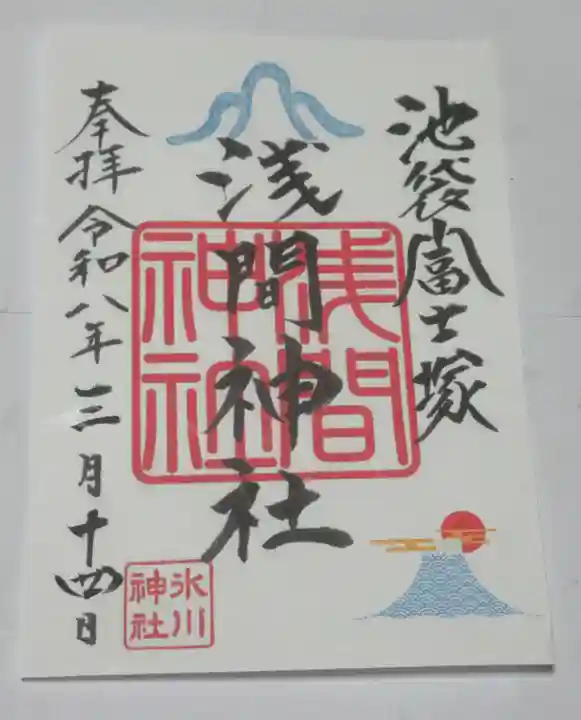 池袋富士塚
浅間神社
浅間
神社
奉拝 令和八年三月十四日
氷川
神社